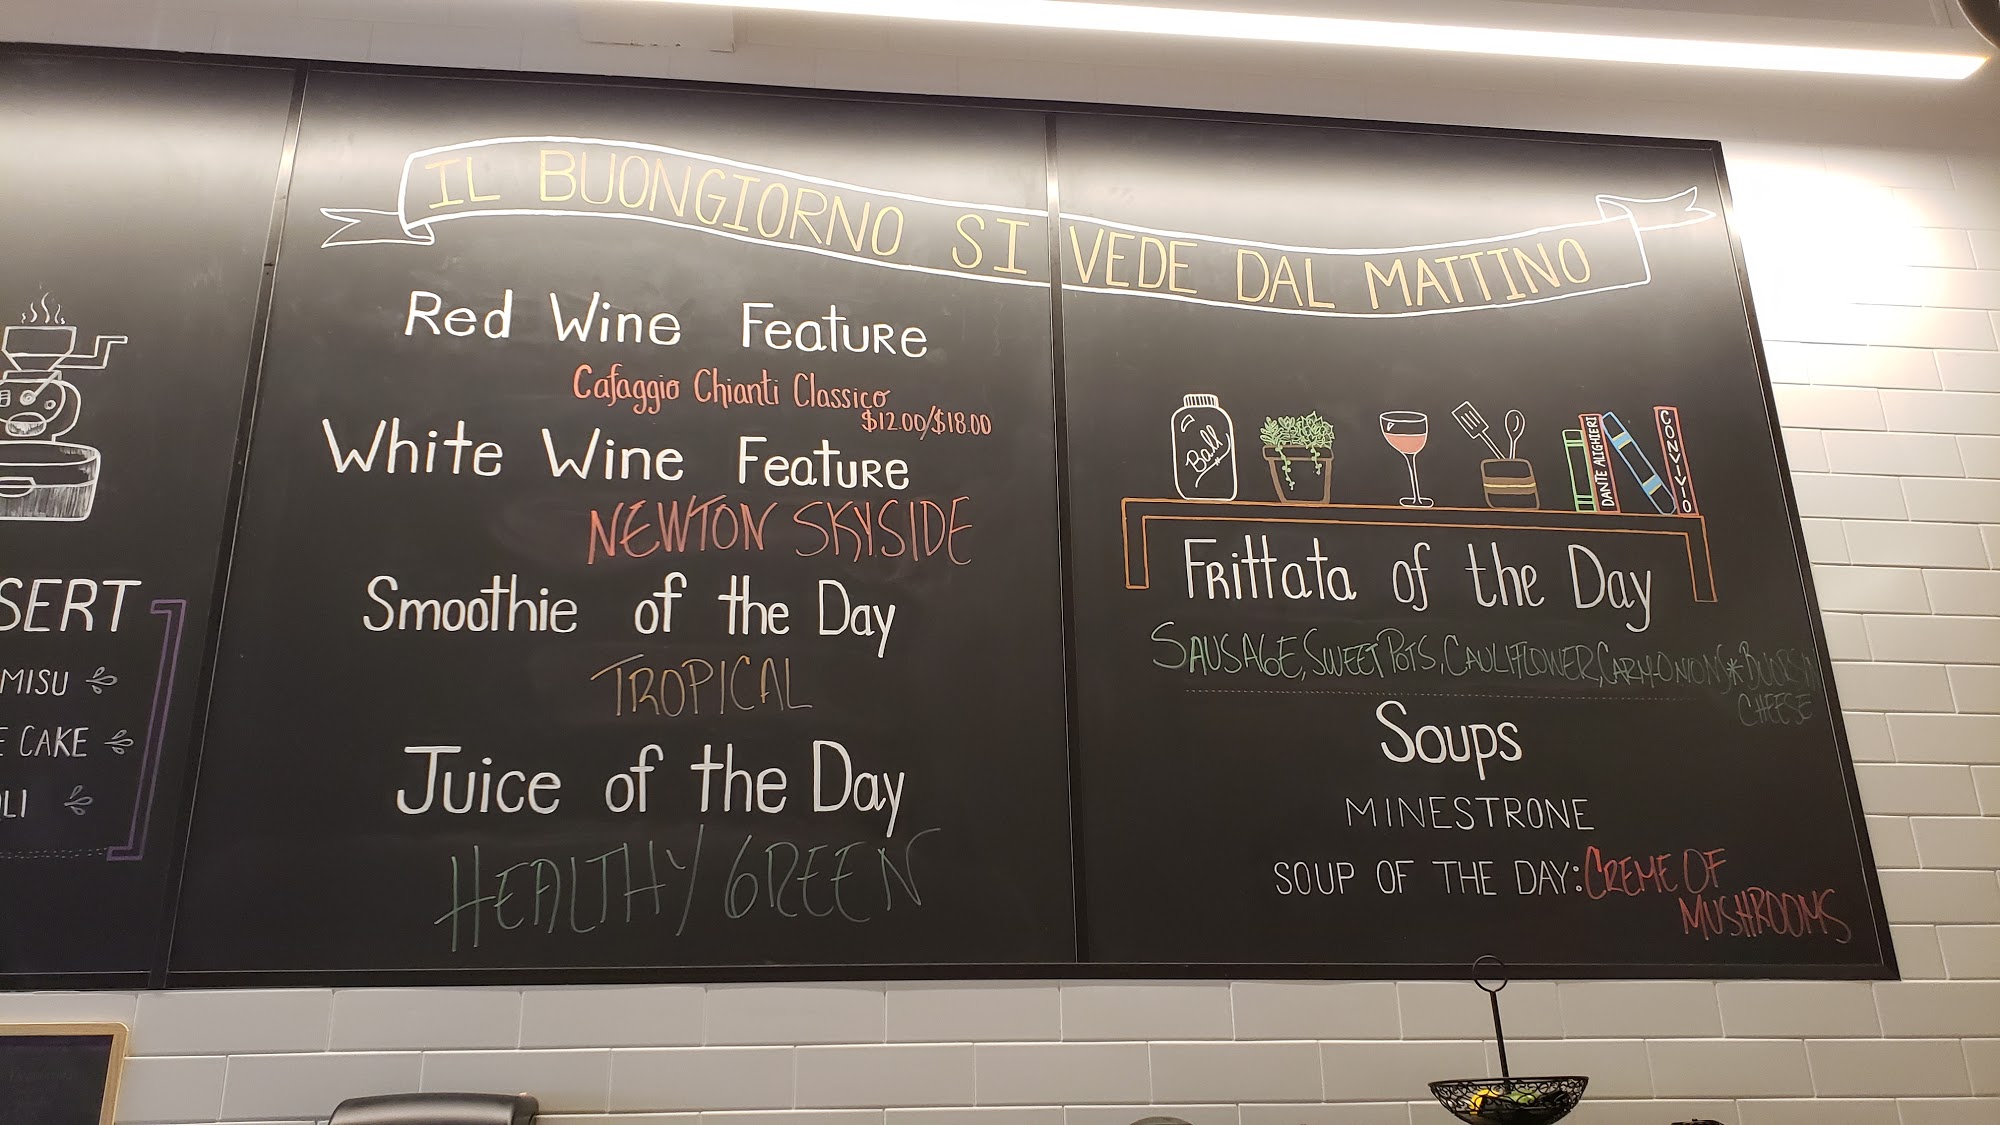 SERT
MISU
E CAKE
LI
IL BUONGIORNO SI VEDE DAL MATTINO
Red Wine Feature
Cafaggio Chianti Classico
$12.00/$18.00
White Wine Feature
NEWTON SKYSIDE
Smoothie of the Day
TROPICAL
Juice of the Day
HEALTHY GREEN
Ball
DANTE ALIGHIERI
CONVIVIO
Frittata of the Day
SAUSAGE, SWEET POTS, CAULIFLOWER,
CHEESE
Soups
MINESTRONE
SOUP OF THE DAY: CREME OF
MUSHROOMS